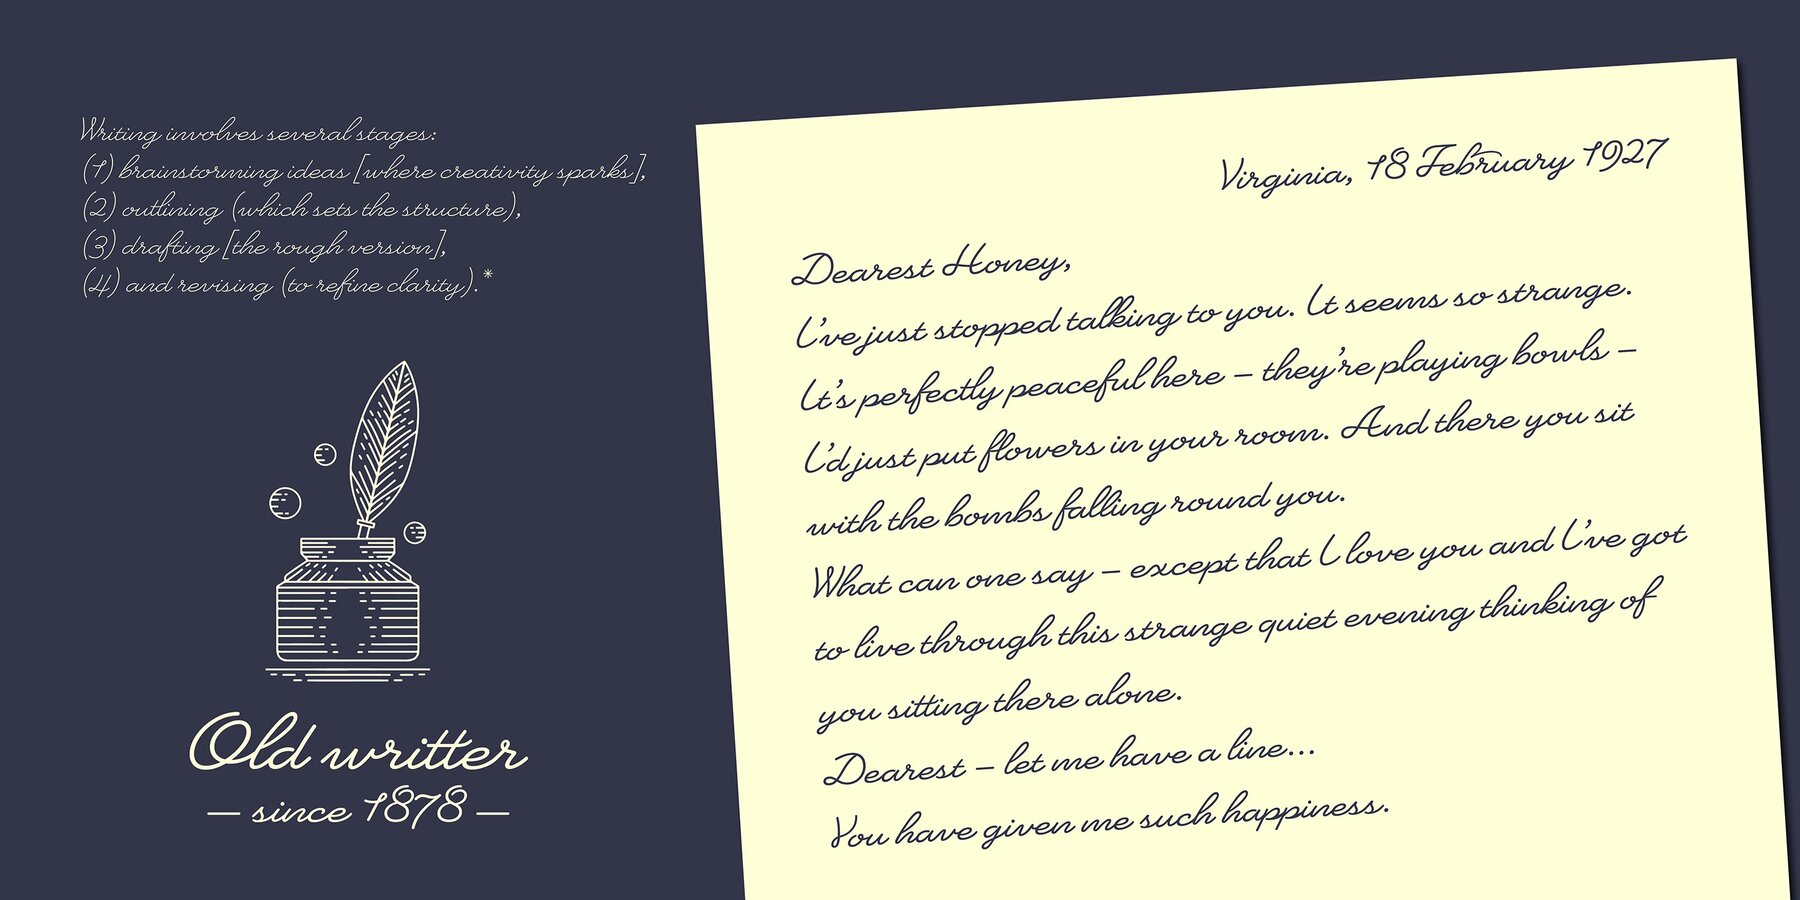 Writing involves several stages:
(1) brainstorming ideas [where creativity sparks],
(2) outlining (which sets the structure),
(3) drafting [the rough version],
(4) and revising (to refine clarity).*
Old writter
— since 1878 —
Virginia, 18 February 1927
Dearest Honey,
I've just stopped talking to you. It seems so strange.
It's perfectly peaceful here – they're playing bowls –
I'd just put flowers in your room. And there you sit
with the bombs falling round you.
What can one say – except that I love you and I've got
to live through this strange quiet evening thinking of
you sitting there alone.
Dearest – let me have a line...
You have given me such happiness.